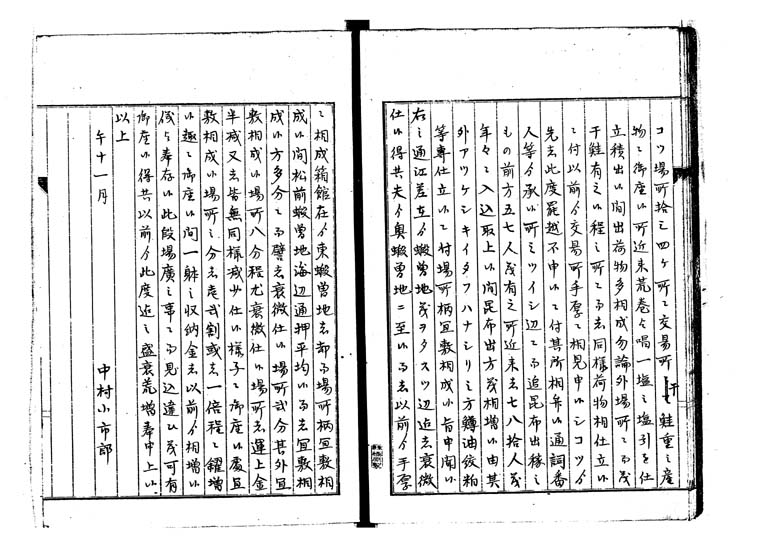 コツ場所拾之四ケ所ニて交易所干鮭重之産
物ニて御座候所近来荒巻と唱一塩之塩引を仕
立積出候間出荷物多相成勿論外場所ニても
干鮭有之候程之所ニても去同様荷物相仕立候
ニ付以前ゟ交易所手厚ニ相見申候シコツゟ
先去此度罷越不申候ニ付其所相弁候通詞番
人等ゟ承候所ミツイシ辺ニても追昆布出稼之
もの前方五七人茂有之所近来去七八拾人茂
年々ニ入込取上候間昆布出方茂相増候由其
外アツケシキイタフハナシリ之方鯡油絞粕
等専仕立候ニ付場所柄宜敷相成候旨申聞候
右之通江差在ゟ蝦夷地茂ヲタスツ辺迄去衰微
仕候得共夫ゟ奥蝦夷地ニ至候ても去以前ゟ手厚
ニ相成箱館在ゟ東蝦夷地去却て場所柄宜敷相
成候間松前蝦夷地海辺通押平均候ても去宜敷相
成候方多分ニて譬去衰微仕候場所弐分其外宜
敷相成候場所八分程尤衰微仕候場所去運上金
半減又去皆無同様減少仕候様子ニ御座候処宜
敷相成候場所之分去壱弐割或去一倍程ニ糶増
候趣ニ御座候間一躰之収納金去以前ゟ相増候
儀と奉存候此段場廣之事ニても見込違候茂可有
御座候得共以前ゟ此度迄之盛衰荒増奉申上候
以上
午十一月
中村小市郎